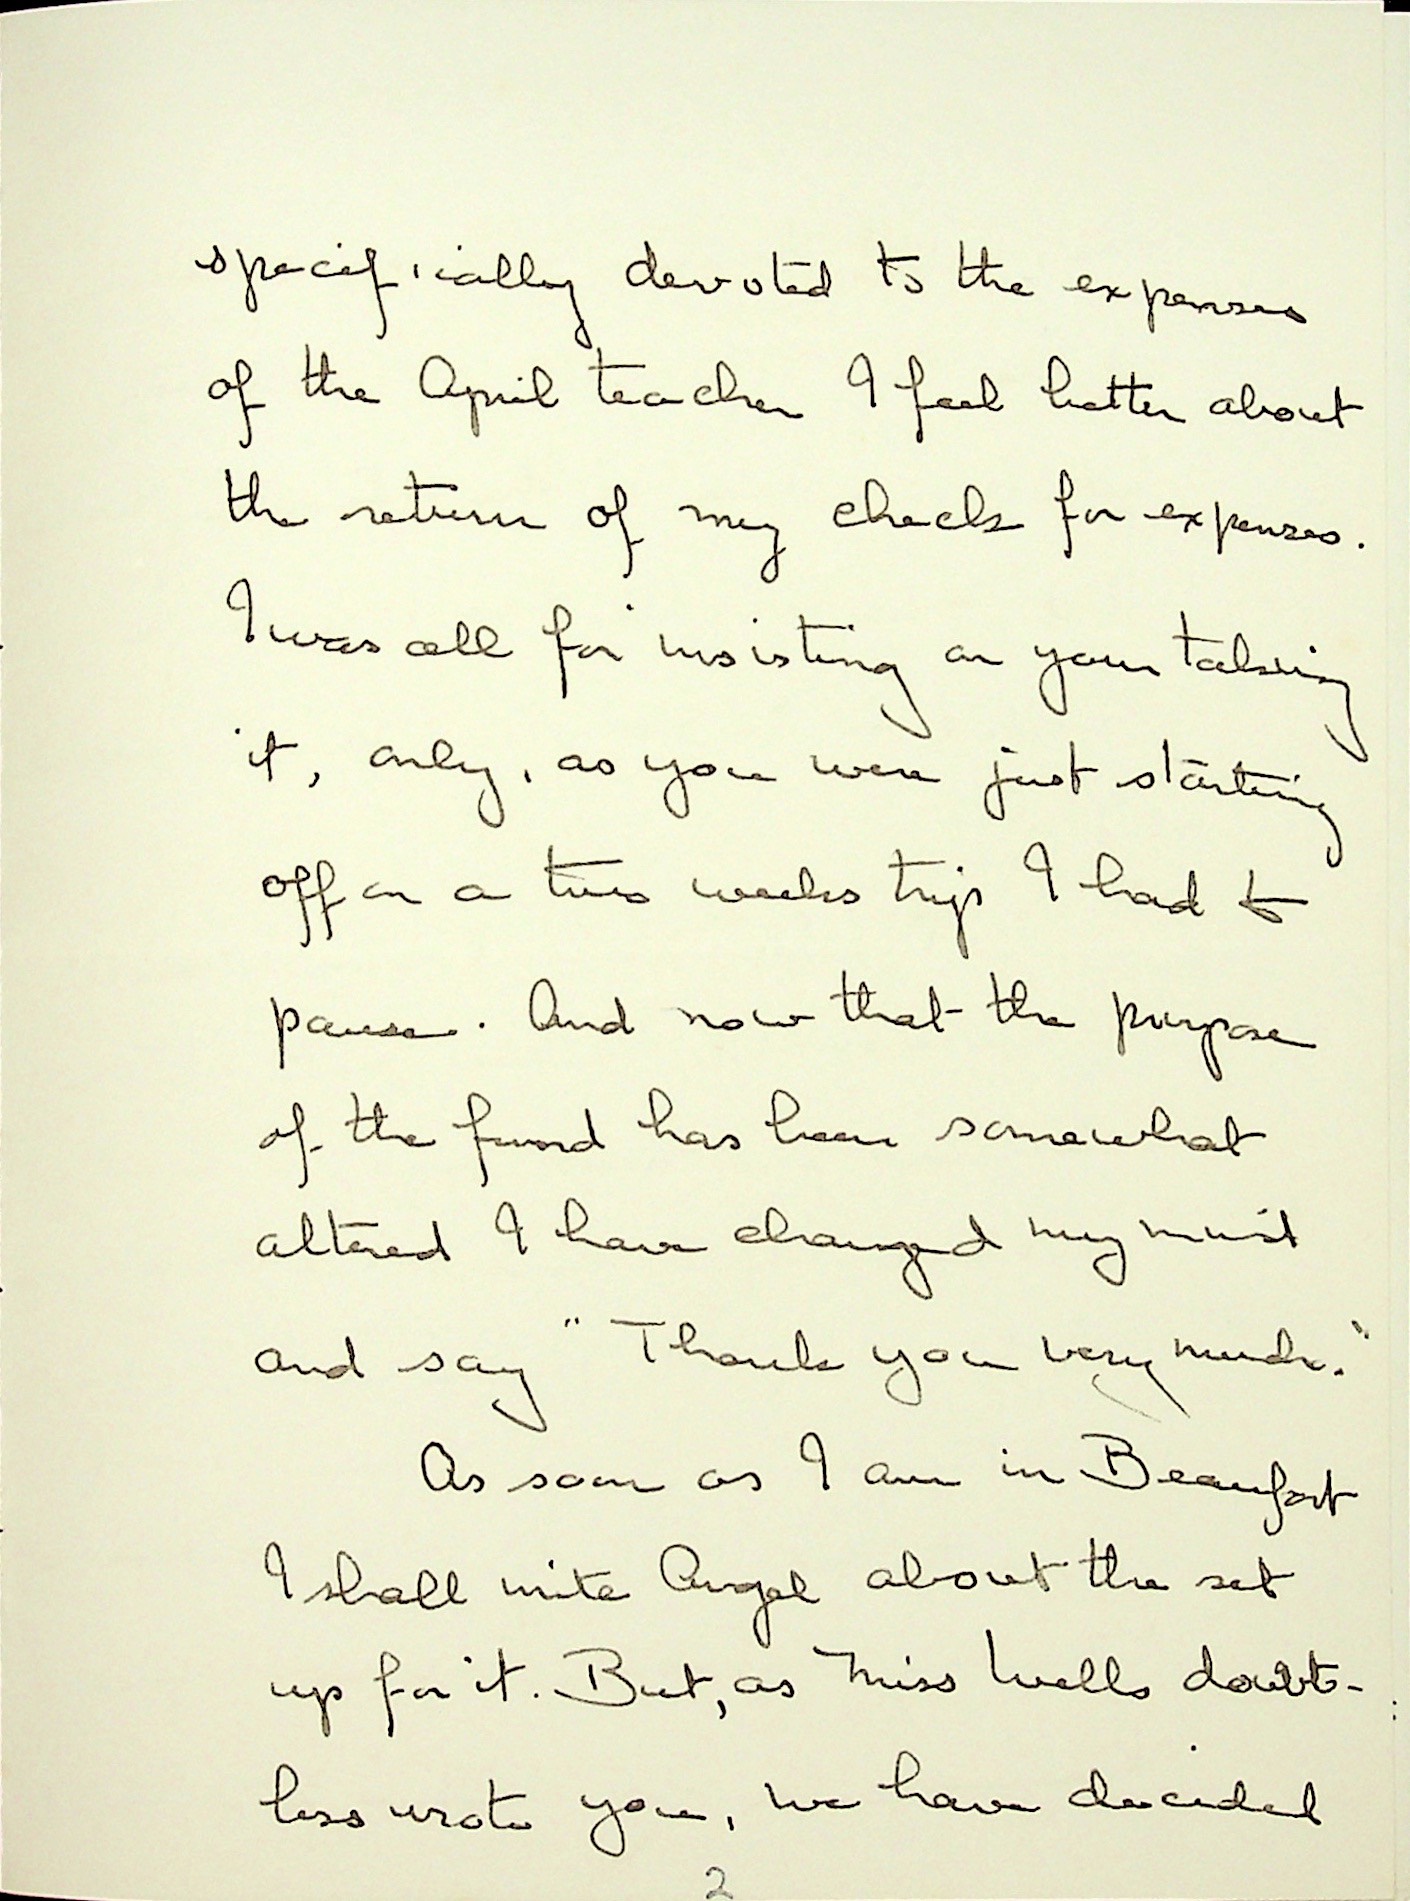 specifically devoted to the expenses
of the April teacher I feel better about
the return of my check for expenses.
I was all for insisting on your taking
it, only, as you were just starting
off on a two weeks trip I had to
pause. And now that the purpose
of the fund has been somewhat
altered I have changed my mind
and say "Thank you very much."
As soon as I am in Beaufort
I shall write Angel about the set
up for it. But, as Miss Wells doubt-
less wrote you, we have decided
2